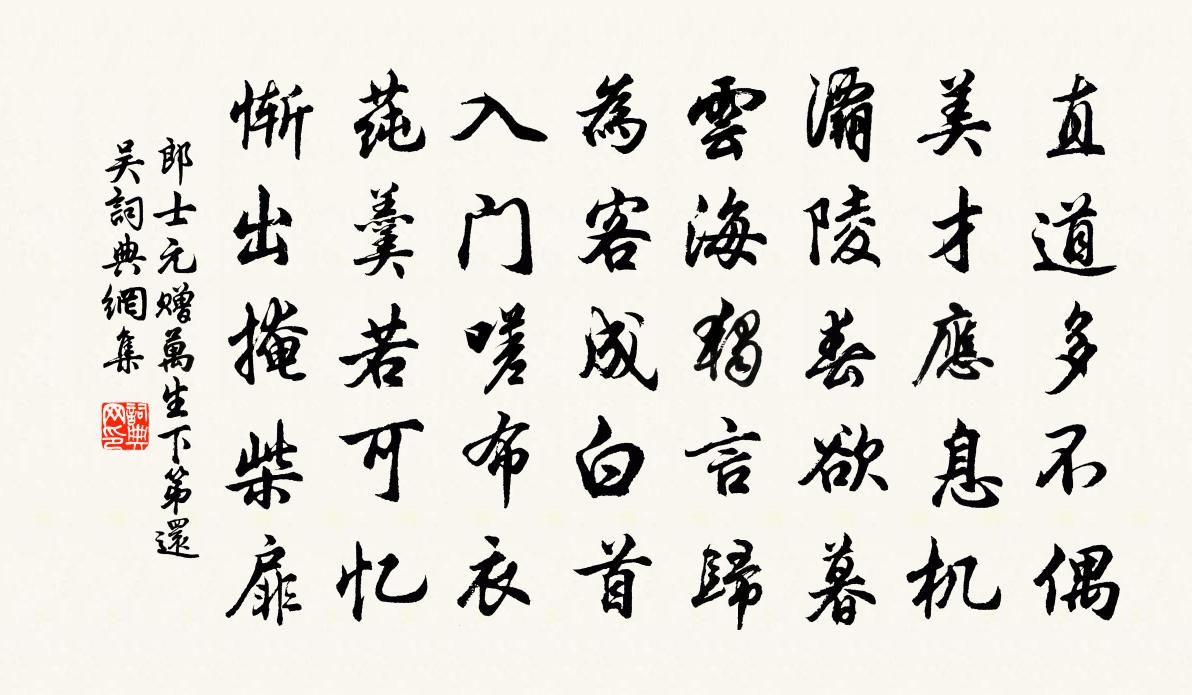 直道多不偶
美才應息机
灞陵春欲暮
雲海獨言歸
為客成白首
入门嗟布衣
莼羹若可忆
慚出掩柴扉
郎士元赠萬生下第還
吴詞典網集
詞典网印